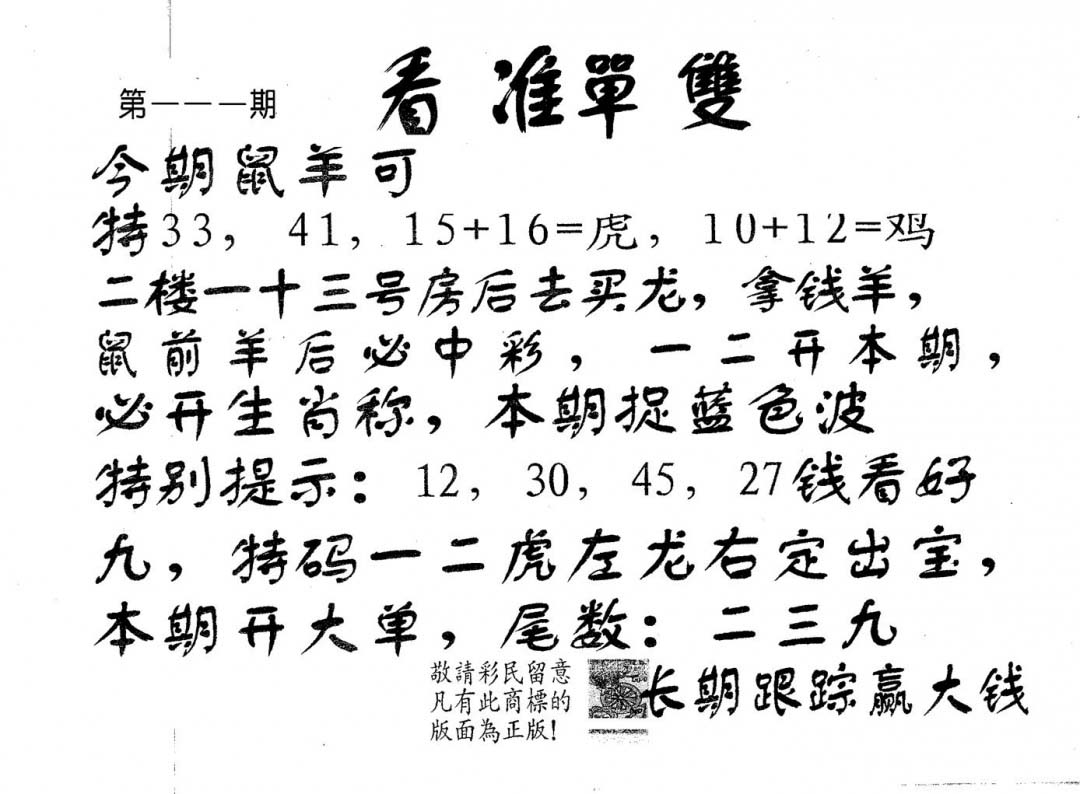 看准單雙
第一一一期
今期鼠羊可
特33，41，15+16=虎，10+12=鸡
二楼一十三号房后去买龙，拿钱羊，
鼠前羊后必中彩，一二开本期，
必开生肖称，本期捉蓝色波
特别提示：12，30，45，27钱看好
九，特码一二虎左龙右定出宝，
本期开大单，尾数：二三九
敬請彩民留意
凡有此商標的
版面為正版！
长期跟踪赢大钱